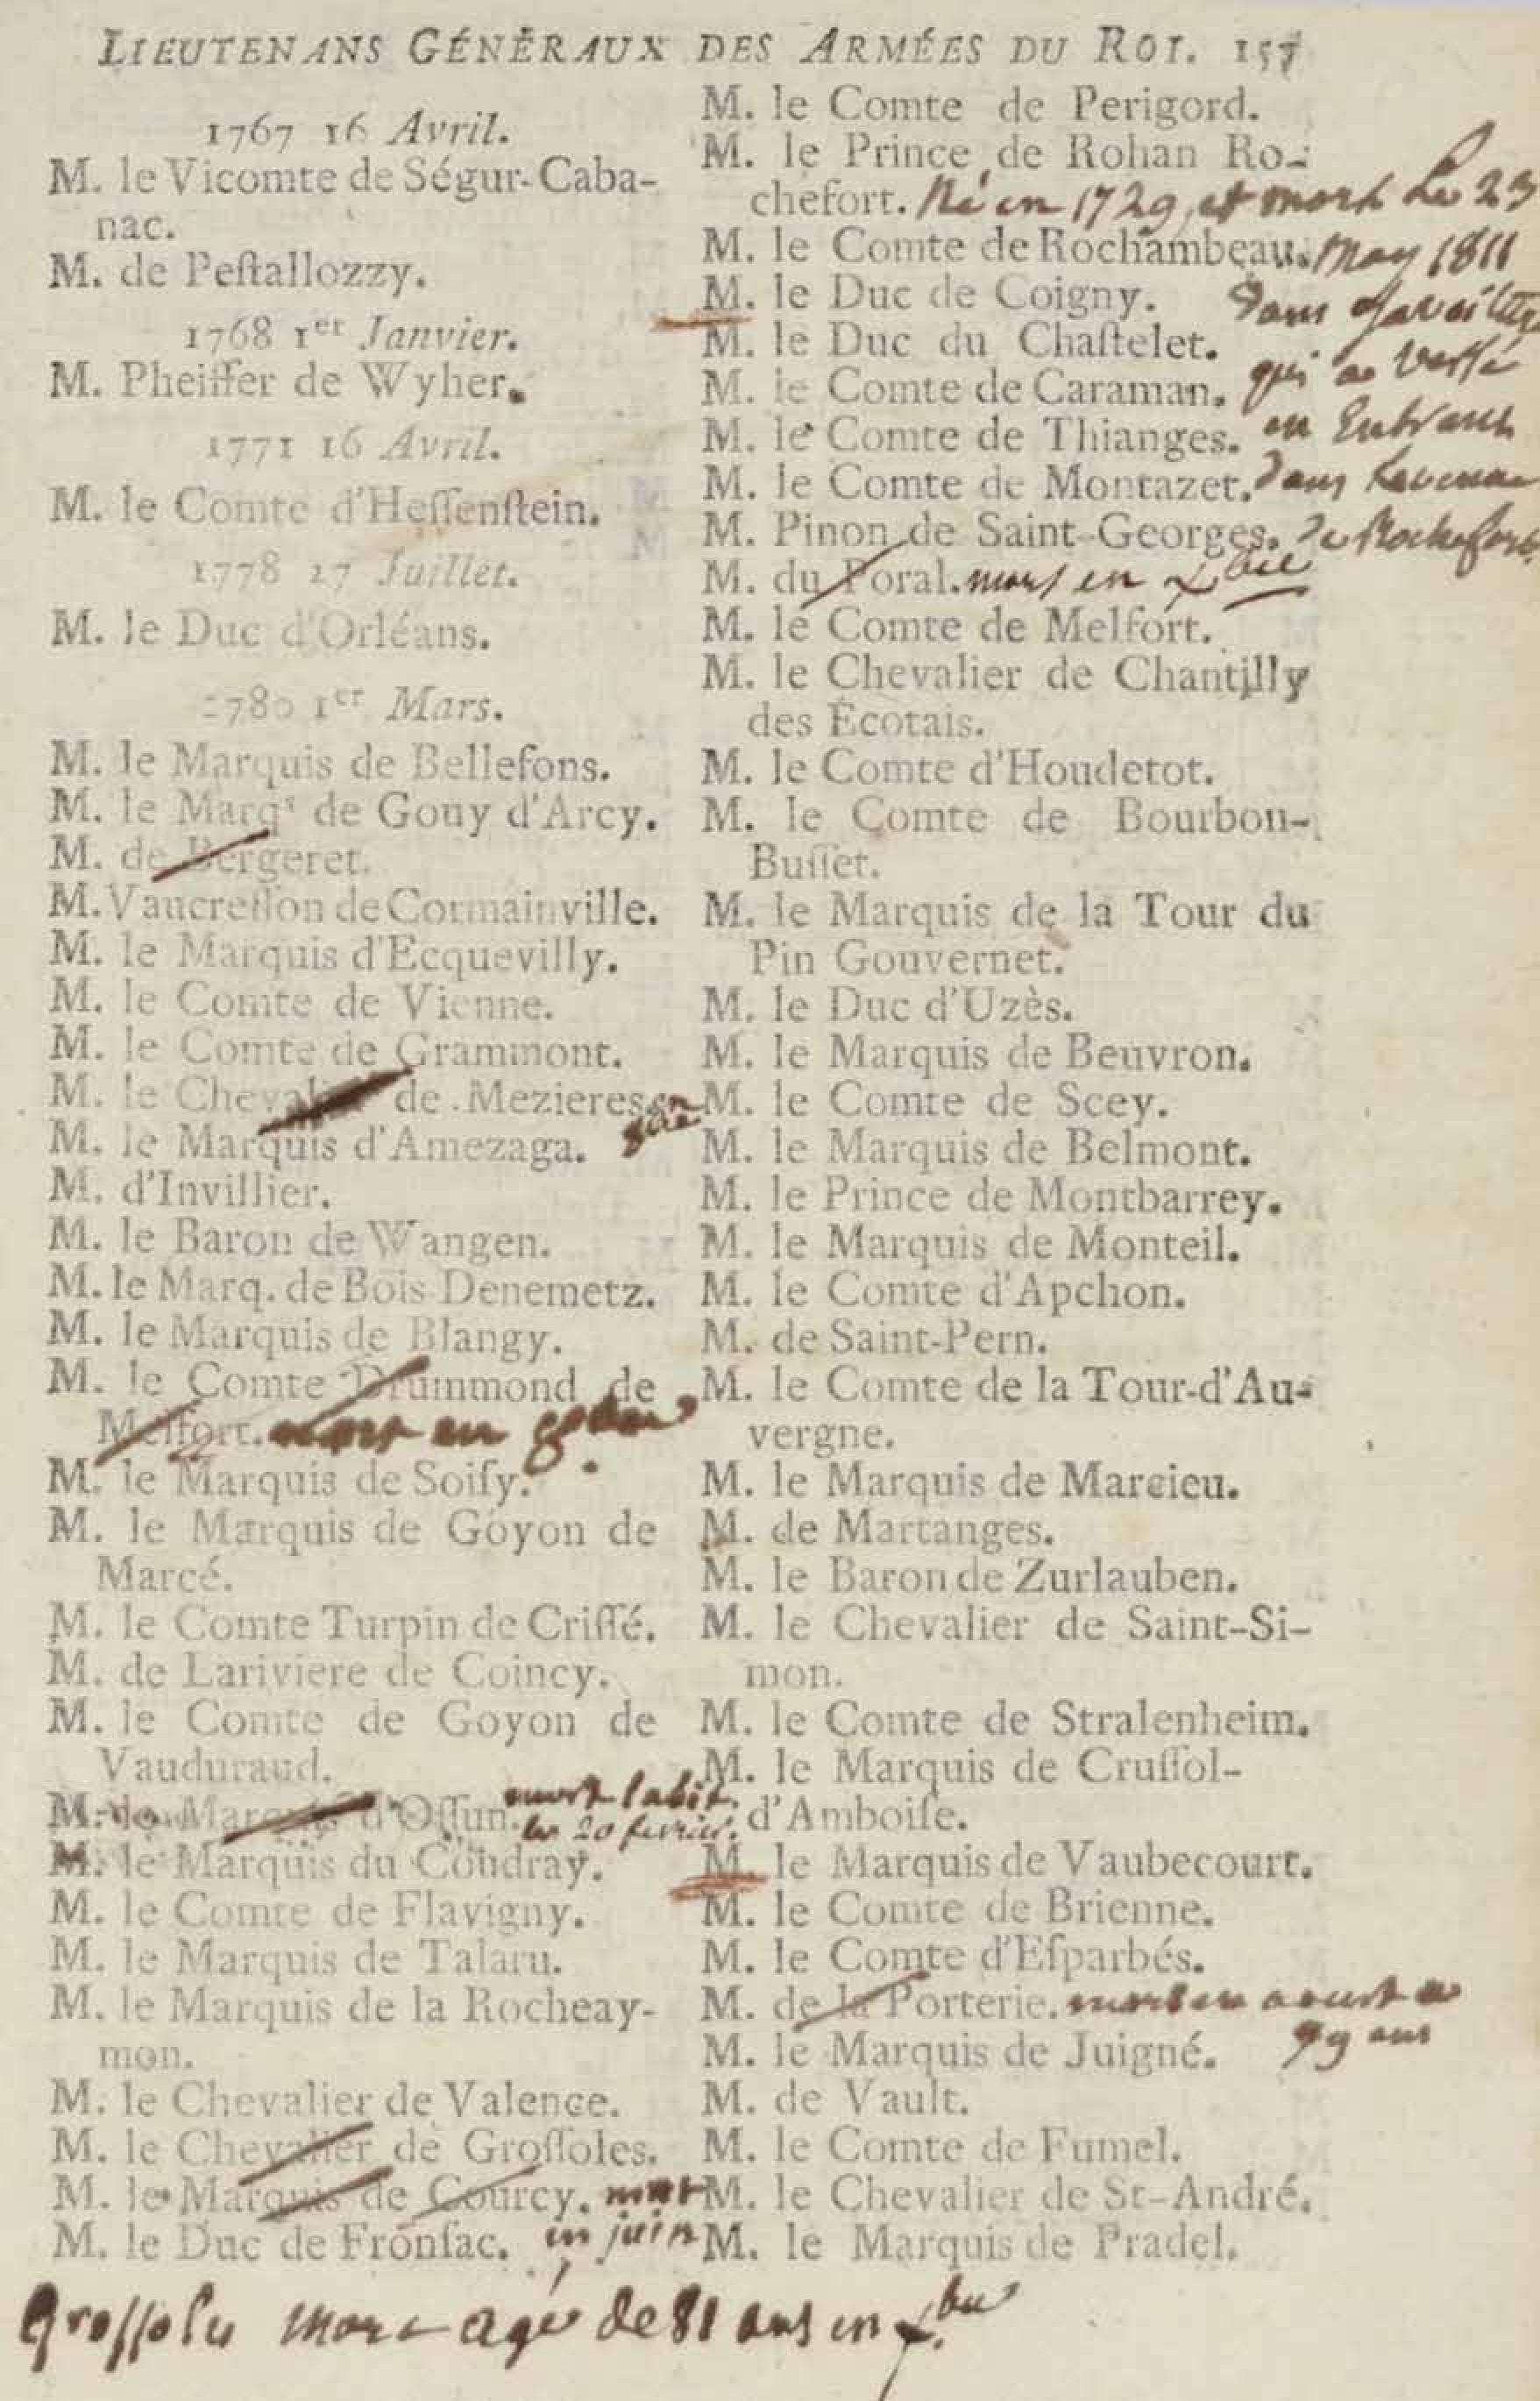 LIEUTENANS GÉNÉRAUX DES ARMÉES DU ROI. 157
1767 16 Avril.
M. le Vicomte de Ségur-Caba-
nac.
M. de Peſtallozzy.
1768 1er Janvier.
M. Pheiffer de Wyher.
1771 16 Avril.
M. le Comte d'Heſſenſtein.
1778 27 Juillet.
M. le Duc d'Orléans.
1780 1er Mars.
M. le Marquis de Bellefons.
M. le Marqs de Gouy d'Arcy.
M. de Bergeret.
M. Vaucreſſon de Cormainville.
M. le Marquis d'Ecquevilly.
M. le Comte de Vienne.
M. le Comte de Grammont.
M. le Chevalier de Mezieres en
M. le Marquis d'Amezaga.
M. d'Invillier.
M. le Baron de Wangen.
M. le Marq. de Bois Denemetz.
M. le Marquis de Blangy.
M. le Comte Drummond de
Melfort. mort en
M. le Marquis de Soiſy.
M. le Marquis de Goyon de
Marcé.
M. le Comte Turpin de Criſſé.
M. de Lariviere de Coincy.
M. le Comte de Goyon de
Vauduraud.
M. le Marquis d'Oſſun. mort subit.
le 20 fevrier.
M. le Marquis du Coudray.
M. le Comte de Flavigny.
M. le Marquis de Talaru.
M. le Marquis de la Rocheay-
mon.
M. le Chevalier de Valence.
M. le Chevalier de Groſſoles.
M. le Marquis de Courcy. mort
M. le Duc de Fronſac. en juin
M. le Comte de Perigord.
M. le Prince de Rohan Ro-
chefort. Né en 1729, et mort Le 23
M. le Comte de Rochambeau. may 1811
M. le Duc de Coigny. Dans sa voiture
M. le Duc du Chaſtelet.
M. le Comte de Caraman. qui a versé
M. le Comte de Thianges. en Entrant
M. le Comte de Montazet. dans
M. Pinon de Saint-Georges. de Rochefort.
M. du Poral. mort en xbre
M. le Comte de Melfort.
M. le Chevalier de Chantilly
des Écotais.
M. le Comte d'Houdetot.
M. le Comte de Bourbon-
Buſſet.
M. le Marquis de la Tour du
Pin Gouvernet.
M. le Duc d'Uzès.
M. le Marquis de Beuvron.
M. le Comte de Scey.
M. le Marquis de Belmont.
M. le Prince de Montbarrey.
M. le Marquis de Monteil.
M. le Comte d'Apchon.
M. de Saint-Pern.
M. le Comte de la Tour-d'Au-
vergne.
M. le Marquis de Marcieu.
M. de Martanges.
M. le Baron de Zurlauben.
M. le Chevalier de Saint-Si-
mon.
M. le Comte de Stralenheim.
M. le Marquis de Cruſſol-
d'Amboiſe.
M. le Marquis de Vaubecourt.
M. le Comte de Brienne.
M. le Comte d'Eſparbés.
M. de la Porterie. mort en aoust a
M. le Marquis de Juigné. 79 ans
M. de Vault.
M. le Comte de Fumel.
M. le Chevalier de St-André.
M. le Marquis de Pradel.
Grossoles mort agé de 81 ans en xbre